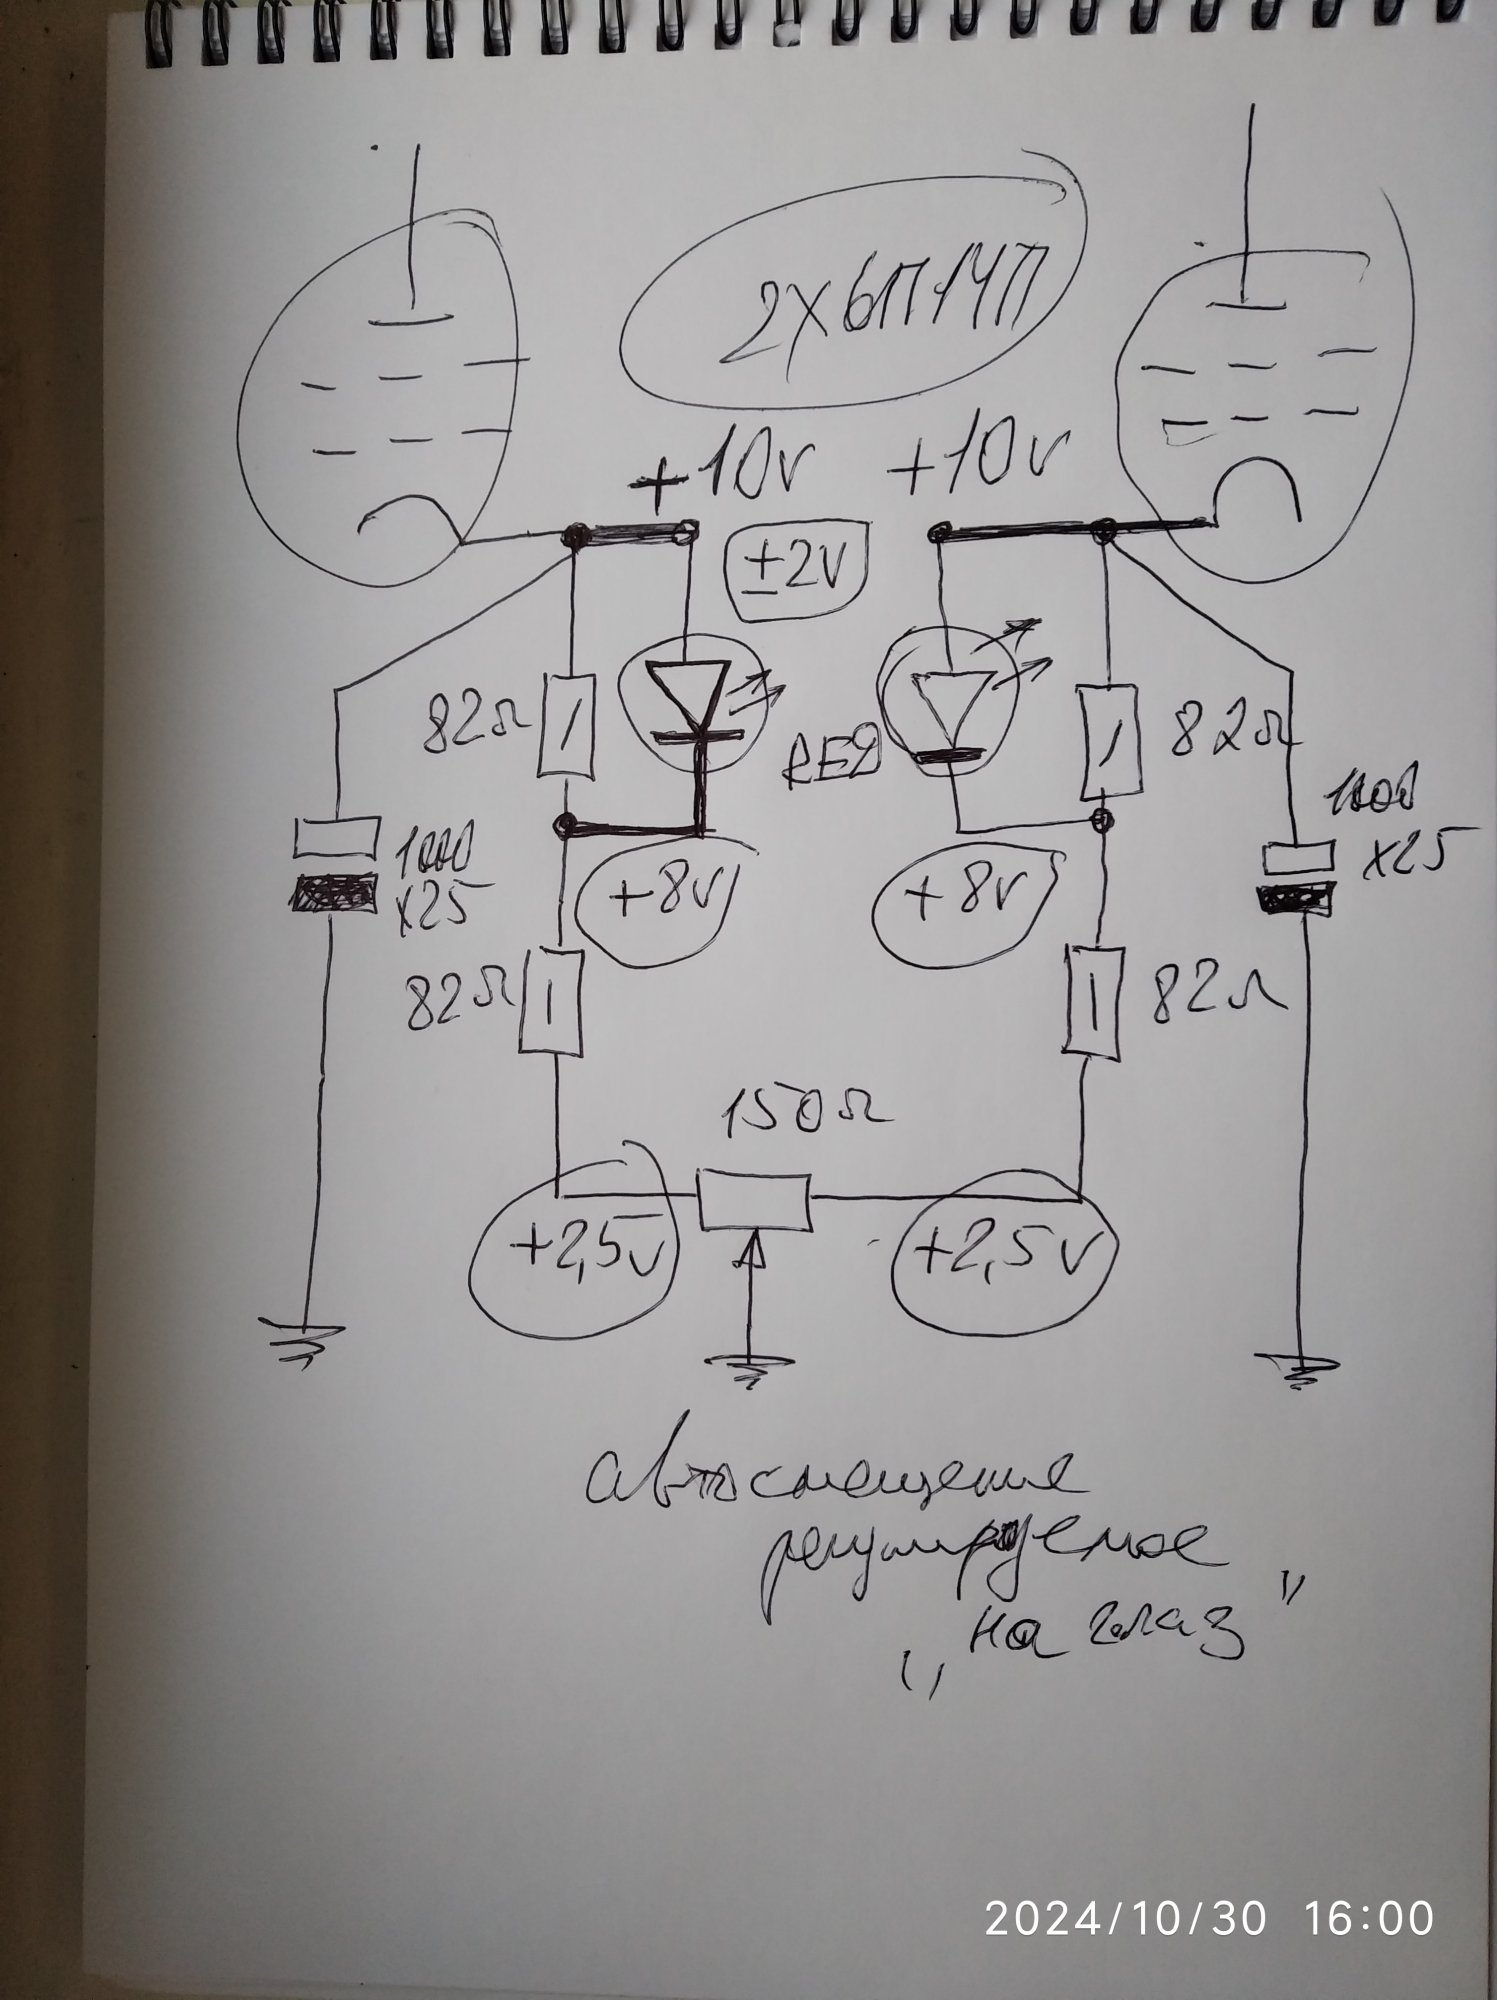 2х6П14П
+10v
+10v
±2v
82Ω
RED
82Ω
1000
x25
1000
x25
+8v
+8v
82Ω
82Ω
150Ω
+2,5v
+2,5v
автосмещение
регулируемое
„на глаз”
2024/10/30 16:00